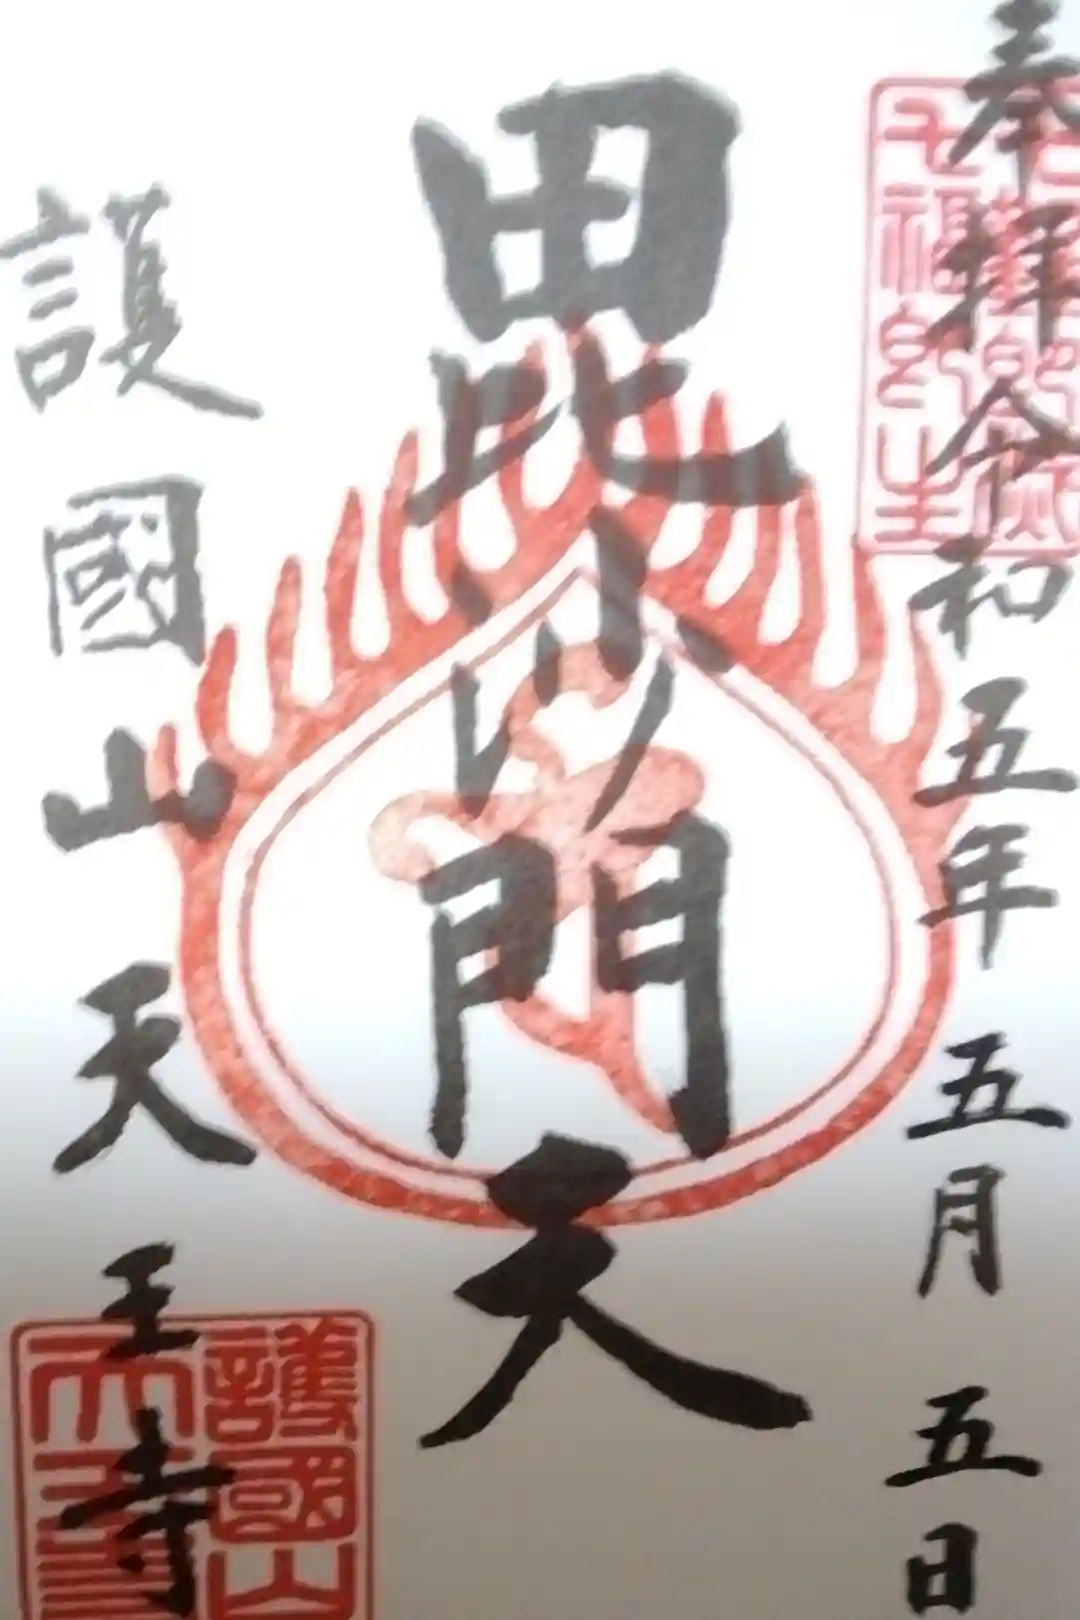 奉拝 令和五年 五月 五日
毘沙門天
護國山 天王寺
七福即生
護國山